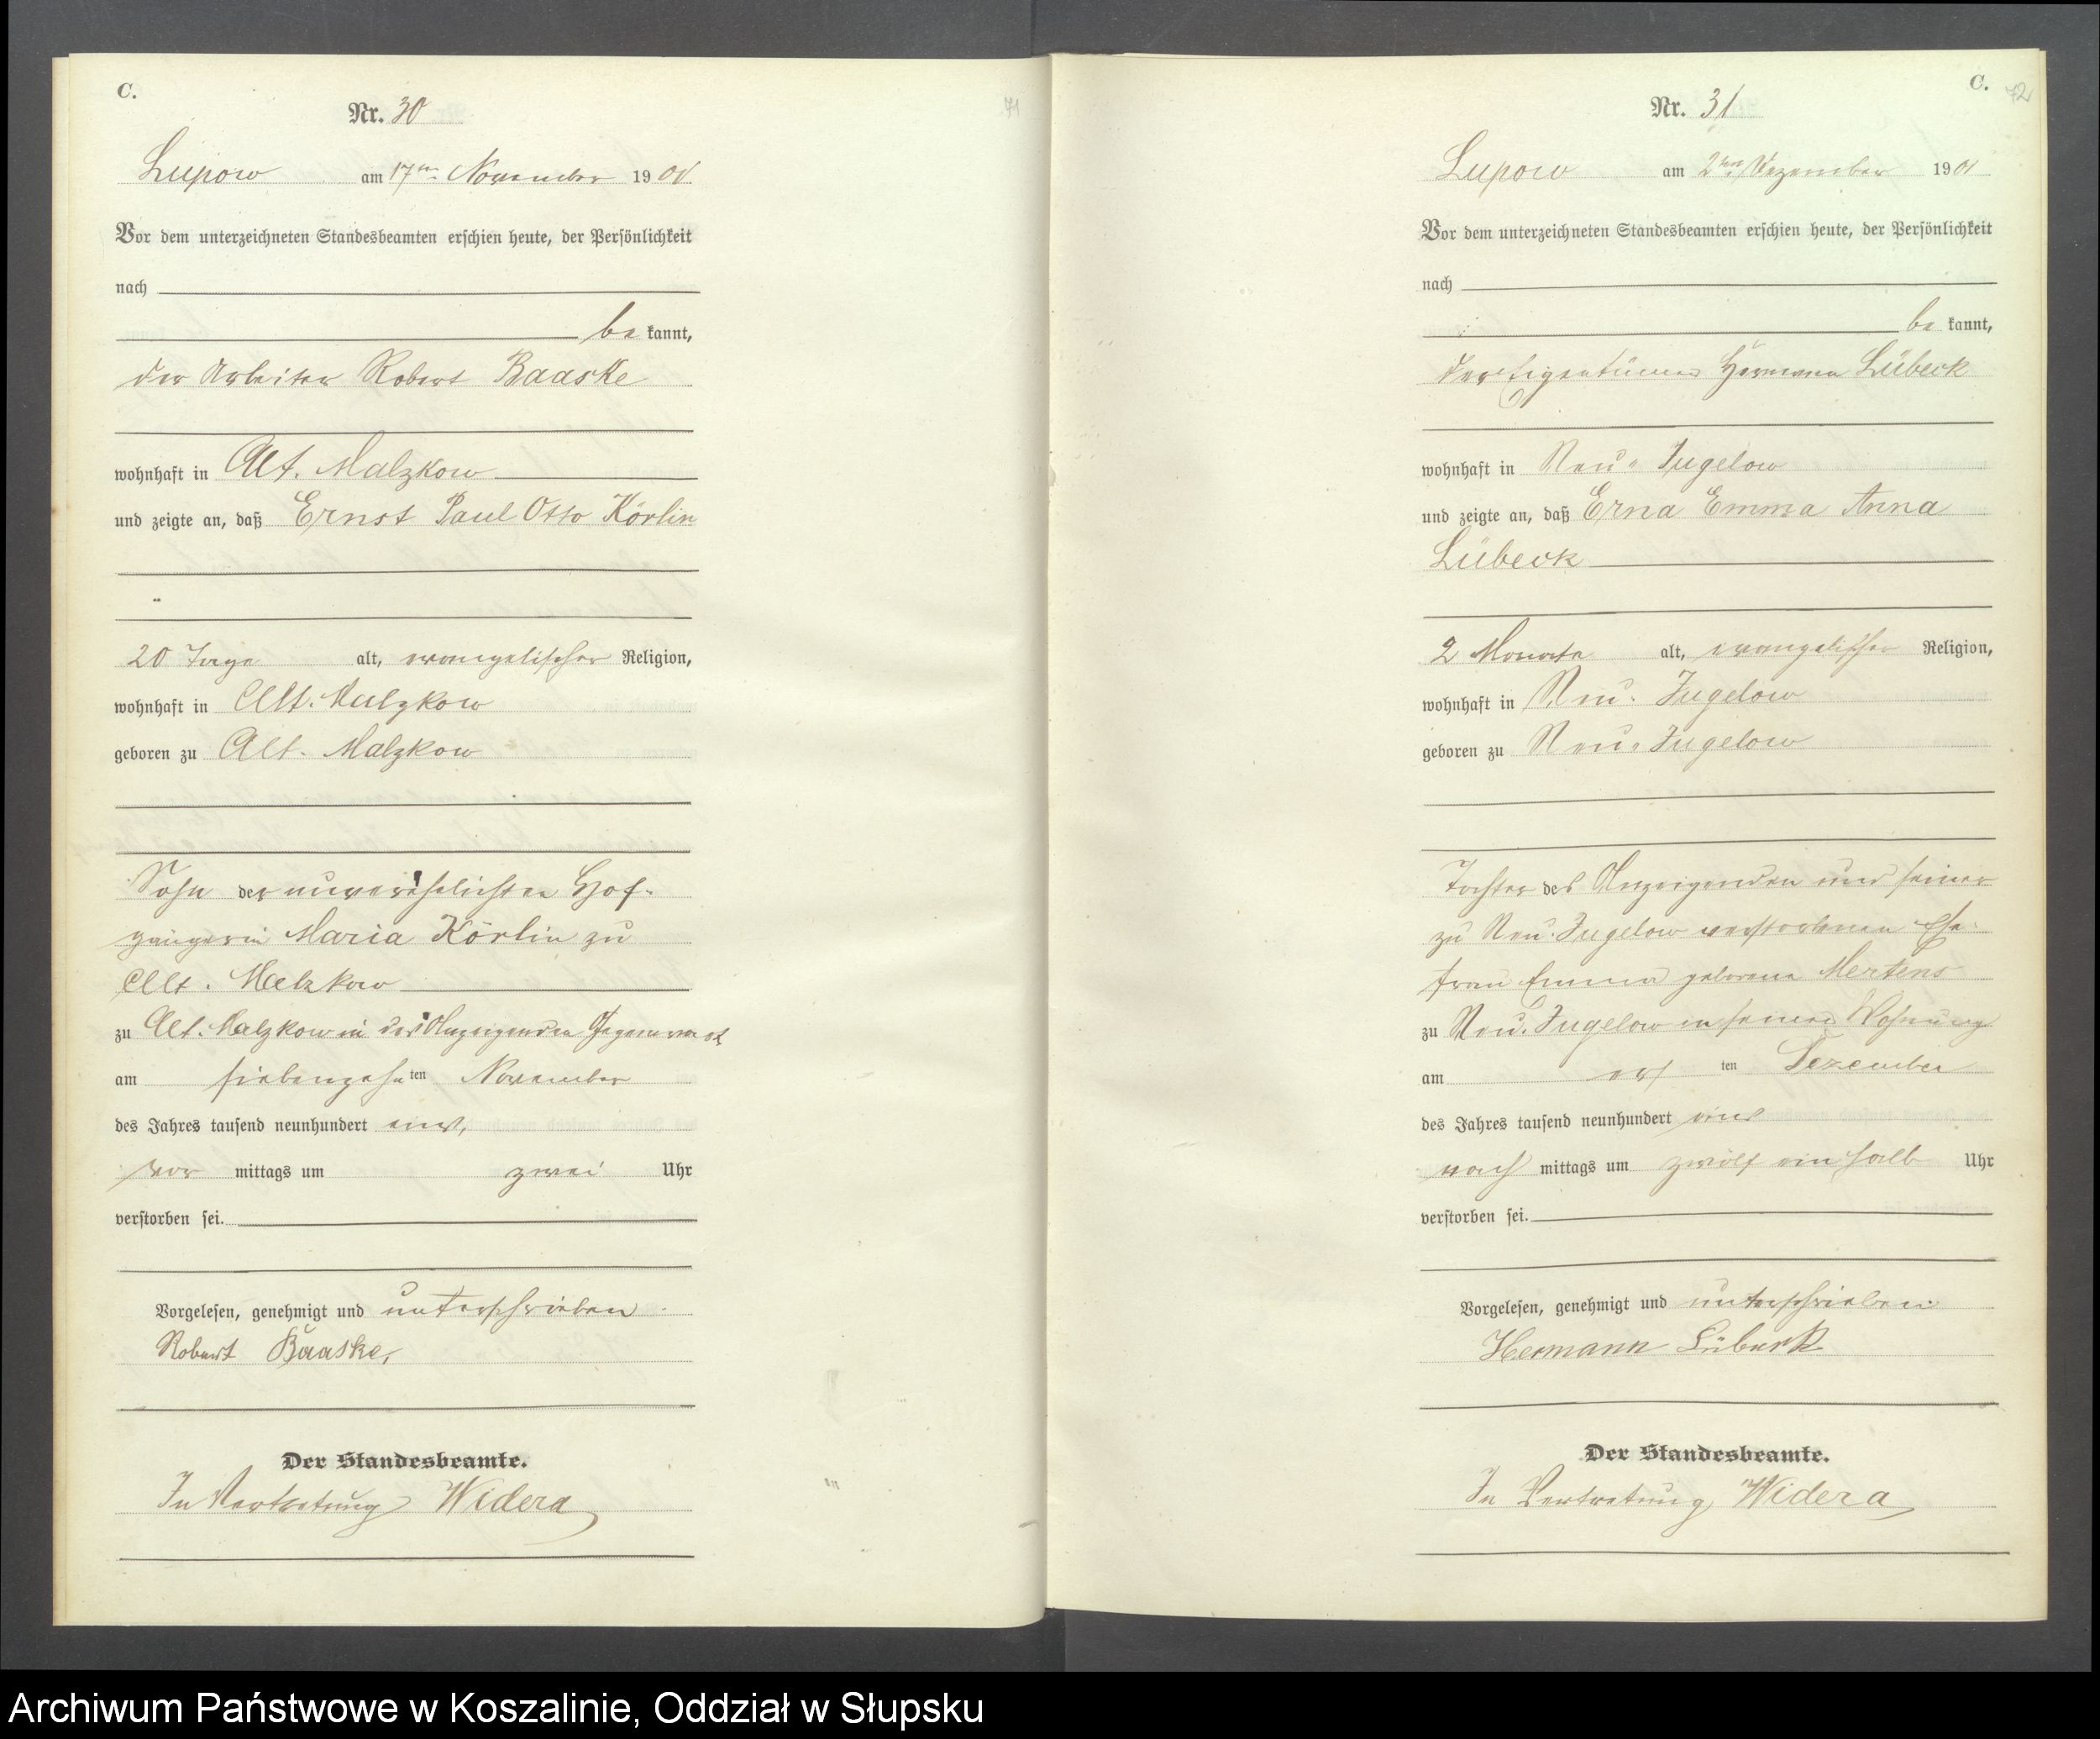 C.
71
Nr. 30
Lupow am 17ten November 1901
Vor dem unterzeichneten Standesbeamten erschien heute, der Persönlichkeit
nach
be kannt,
der Arbeiter Robert Baaske
wohnhaft in Alt. Malzkow
und zeigte an, daß Ernst Paul Otto Körlin
20 Tage alt, evangelischer Religion,
wohnhaft in Alt. Malzkow
geboren zu Alt. Malzkow
Sohn der unverehelichten Hof-
gängerin Maria Körlin zu
Alt. Malzkow
zu Alt. Malzkow in des Anzeigenden Gegenwart
am siebenzehnten November
des Jahres tausend neunhundert eins,
vor mittags um zwei Uhr
verstorben sei.
Vorgelesen, genehmigt und unterschrieben
Robert Baaske,
Der Standesbeamte.
In Vertretung Widera
C.
72
Nr. 31
Lupow am 2ten Dezember 1901
Vor dem unterzeichneten Standesbeamten erschien heute, der Persönlichkeit
nach
be kannt,
der Eigentümer Hermann Lübeck
wohnhaft in Neu-Jugelow
und zeigte an, daß Erna Emma Anna
Lübeck
2 Monate alt, evangelischer Religion,
wohnhaft in Neu-Jugelow
geboren zu Neu-Jugelow
Tochter des Anzeigenden und seiner
zu Neu-Jugelow verstorbenen Ehe-
frau Emma geborene Mertens
zu Neu-Jugelow in seiner Wohnung
am ersten Dezember
des Jahres tausend neunhundert eins
nach mittags um zwölf ein halb Uhr
verstorben sei.
Vorgelesen, genehmigt und unterschrieben
Hermann Lübeck
Der Standesbeamte.
In Vertretung Widera
Archiwum Państwowe w Koszalinie, Oddział w Słupsku